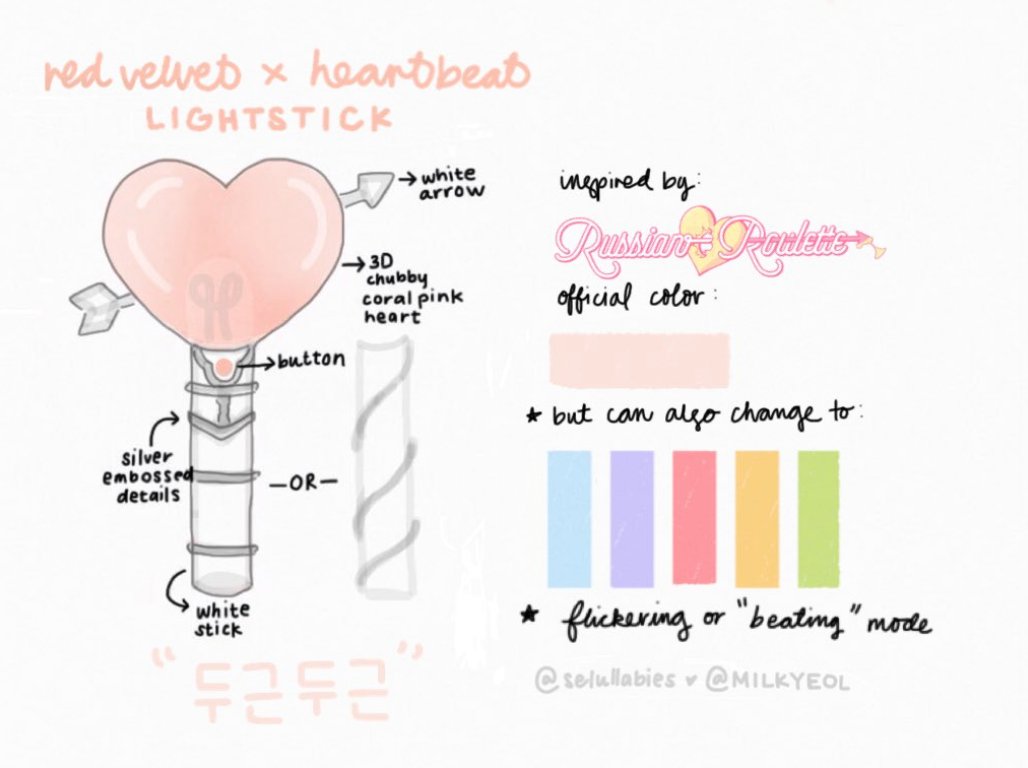 red velvet x heartbeat
LIGHTSTICK
white
arrow
3D
chubby
coral pink
heart
button
silver
embossed
details
-OR-
white
stick
"두근두근"
inspired by:
Russian Roulette
official color:
★ but can also change to:
★ flickering or "beating" mode
@selullabies ♥ @MILKYEOL